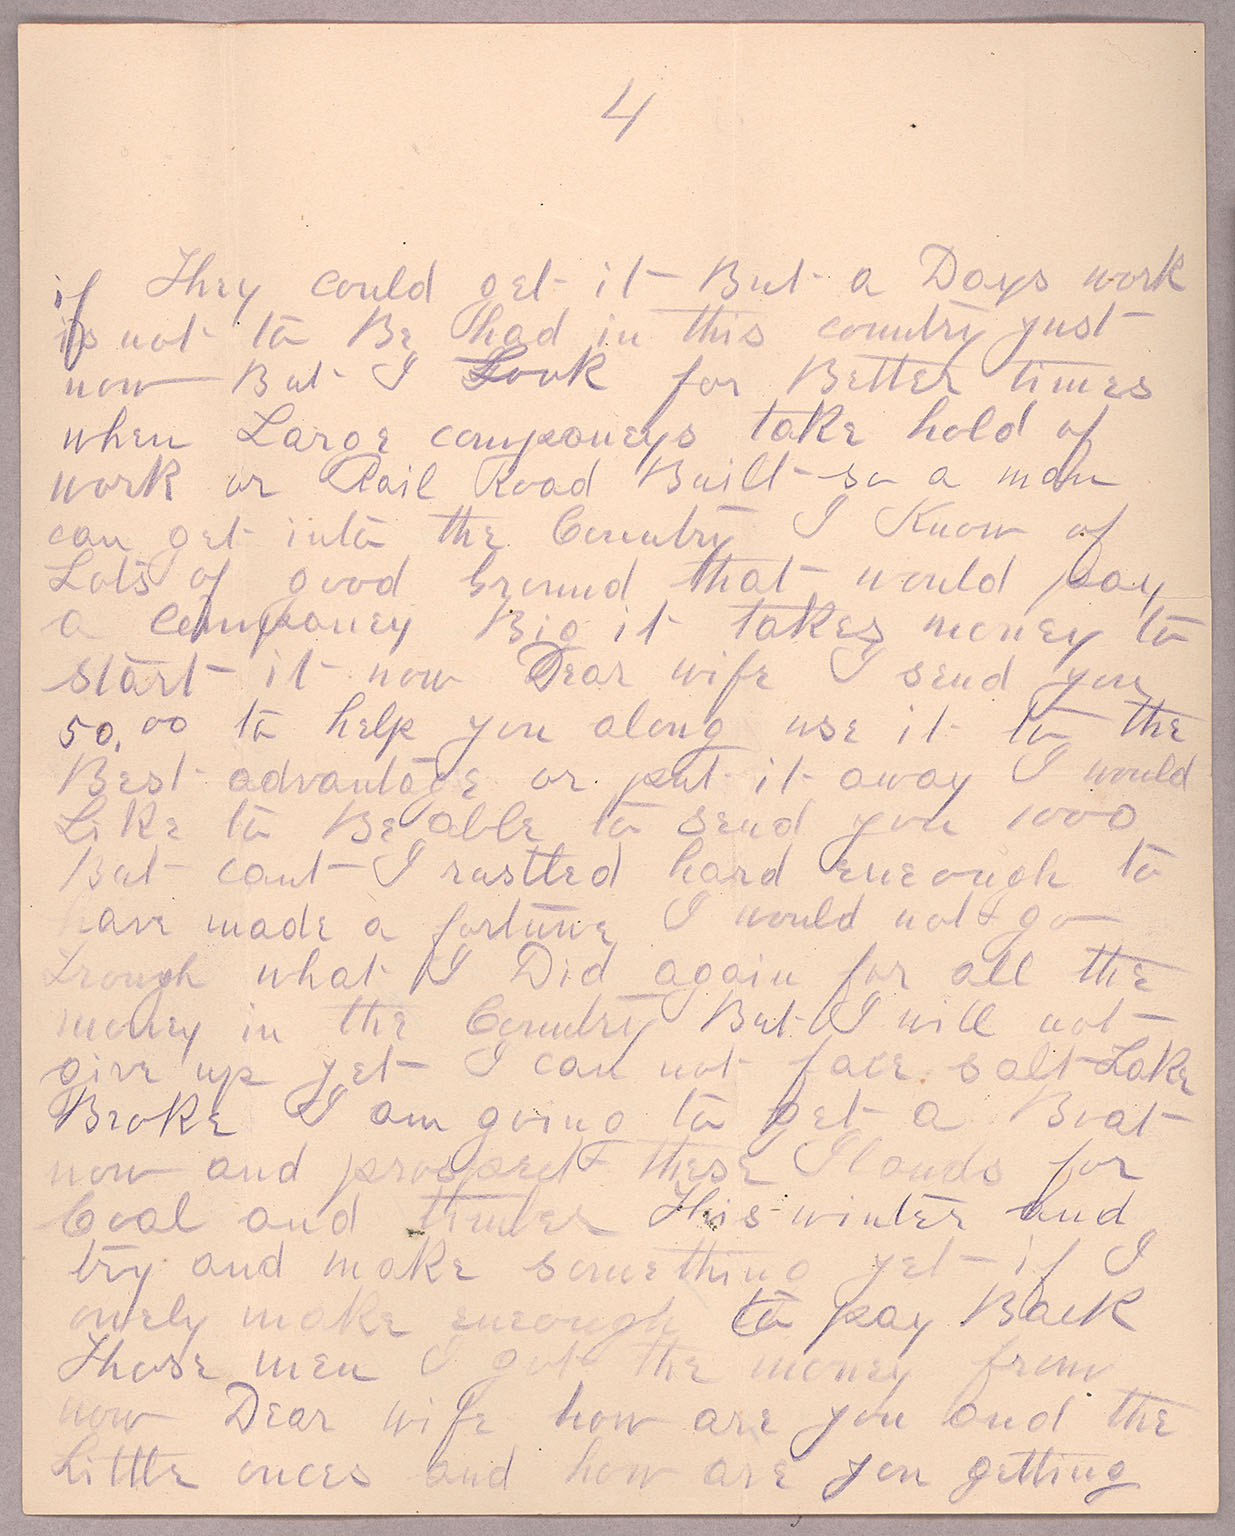 4
if They could get it But a Days work
is not to Be had in this country just
now But I Look for Better times
when Large componeys take hold of
work or Rail Road Built so a man
can get into the Country I Know of
Lots of good Ground that would pay
a Componey Big it takes money to
start it now Dear wife I send you
50.00 to help you along use it to the
Best advantage or put it away I would
Like to Be able to send you 1000
But cant I rustled hard eneough to
have made a fortune I would not go
Trough what I Did again for all the
money in the Country But I will not
give up yet I can not face salt Lake
Broke I am going to get a Boat
now and prospect these Ilands for
Coal and timber This winter and
try and make something yet if I
onely make eneough to pay Back
Those men I got the money from
now Dear wife how are you and the
Little onces and how are you getting